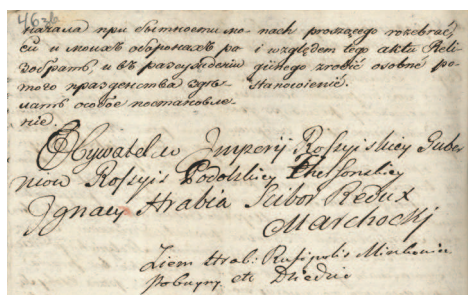 463б
начала при бытности мо-
ей и моихъ оборонахъ ра
зобрать, и въ разсужденіи
того празденства здѣ-
лать особое постановле-
ніе.
nach proszącego rozebrać,
i względem tego aktu Reli
gijnego zrobić osobne po-
stanowienie.
Obywatel w Imperij Rossyiskiey Guber
niow Rossyis Podolskiey Chersonskiey
Ignacy Hrabia Scibor Redux
Marchockj
Ziem Hrab: Rusipolis Minkowie
Pobuyny etc Dziedzic